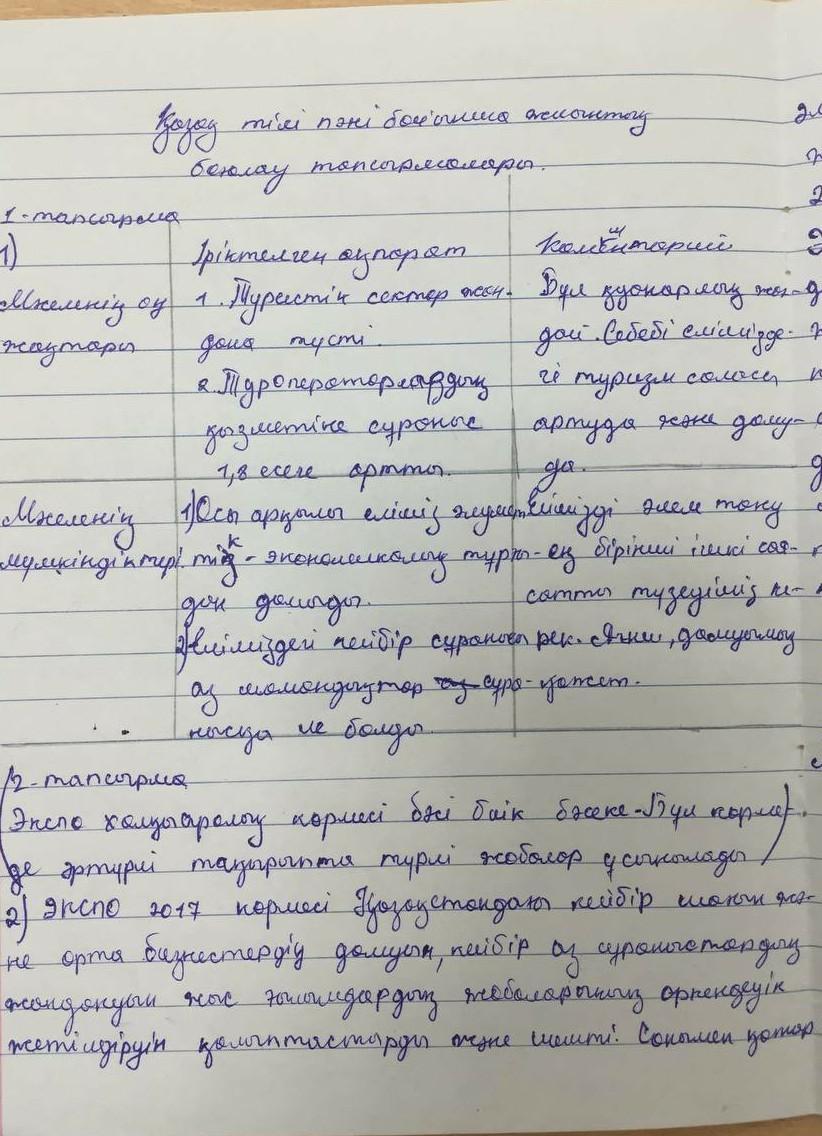 Қазақ тілі пәні бойынша жиынтық
бағалау тапсырмалары.
1-тапсырма
1)
Іріктелген ақпарат
Комментарий
Мәселенің оң
жақтары
1. Туристік сектор жан-
дана түсті.
2. Туроператорлардың
қызметіне сұраныс
1,8 есеге артты.
Бұл қуанарлық жағ-
дай. Себебі еліміздe-
гі туризм саласы
артуда және даму-
да.
Мәселенің
мүмкіндіктері
1) Осы арқылы еліміз әлумет
тік - экономикалық тұрғы-
дан дамыды.
2) Еліміздегі кейбір сұранысы
аз мамандықтар сұра-
нысқа ие болды.
Елімізді әлем тану
ең бірінші ішкі сая-
сатты түзеуіміз ке-
рек. Яғни, дамуымыз
қажет.
2-тапсырма
(Экспо халықаралық көрмесі бәсі биік бәсеке - Бұл көрме
де әртүрлі тақырыпта түрлі жобалар ұсынылады)
2) ЭКСПО 2017 көрмесі Қазақстандағы кейбір шағын жә-
не орта бизнестердің дамуын, кейбір аз сұраныстардың
жандануын жас ғалымдардың жобаларының өркендеуін
жетілдіруін қалыптастырды және шешті. Сонымен қатар